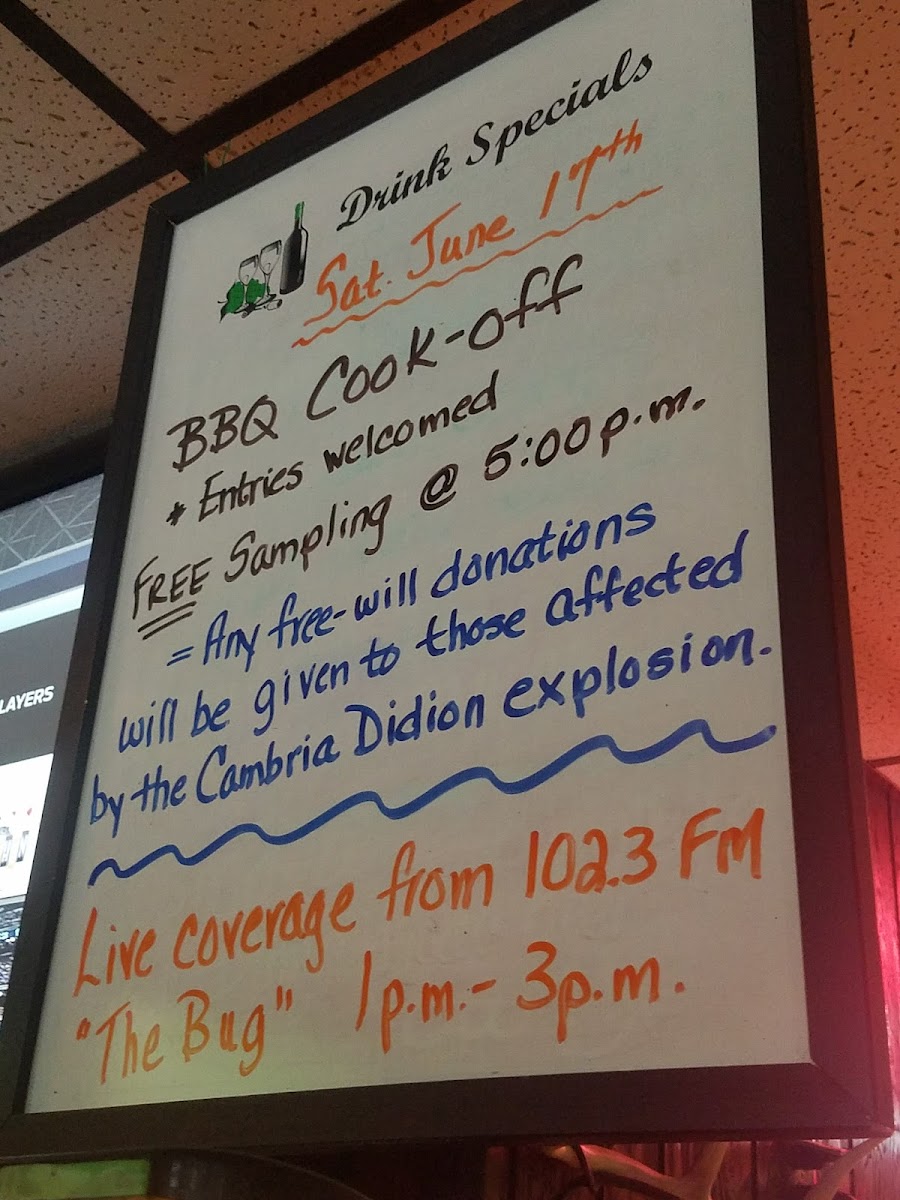 Drink Specials
Sat. June 17th
BBQ Cook-off
* Entries welcomed
FREE Sampling @ 5:00p.m.
= Any free-will donations
will be given to those affected
by the Cambria Didion explosion.
Live coverage from 102.3 FM
"The Bug" 1p.m.- 3p.m.
LAYERS